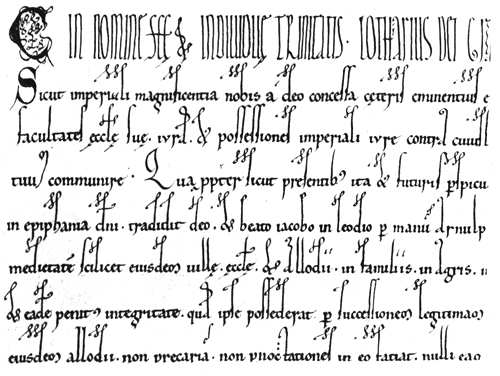 IN NOMINE SCE & INDIVIDUE TRINITATIS. LOTHARIUS DEI G
Sicut imperiali magnificentia nobis a deo concessa ceteris eminentius
facultates eccle sue, iura. & possessiones imperiali iure contra
communire. Qua ppter sicut presentib ita & futuris
in epiphania dni. tradidit deo. & beato iacobo in leodio p manu arnulp
medietate scilicet eiusdem ville, eccle, & allodii. in familiis. in agris.
& eade penit integritate. qua ipse possederat p successiones legitimas
eiusdem allodii. non precaria. non in eo faciat. nulli